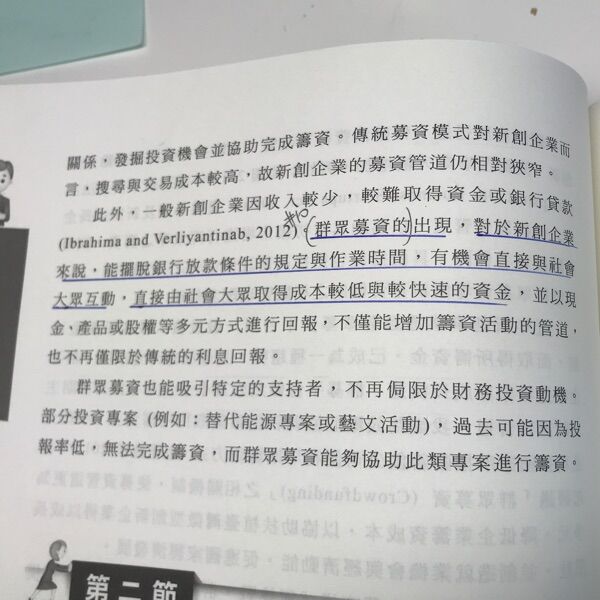 關係，發掘投資機會並協助完成籌資。傳統募資模式對新創企業而
言，搜尋與交易成本較高，故新創企業的募資管道仍相對狹窄。
此外，一般新創企業因收入較少，較難取得資金或銀行貸款
(Ibrahima and Verliyantinab, 2012)。(群眾募資的)出現，對於新創企業
來說，能擺脫銀行放款條件的規定與作業時間，有機會直接與社會
大眾互動，直接由社會大眾取得成本較低與較快速的資金，並以現
金、產品或股權等多元方式進行回報，不僅能增加籌資活動的管道，
也不再僅限於傳統的利息回報。
群眾募資也能吸引特定的支持者，不再侷限於財務投資動機。
部分投資專案 (例如：替代能源專案或藝文活動)，過去可能因為投
報率低，無法完成籌資，而群眾募資能夠協助此類專案進行籌資。
第二節